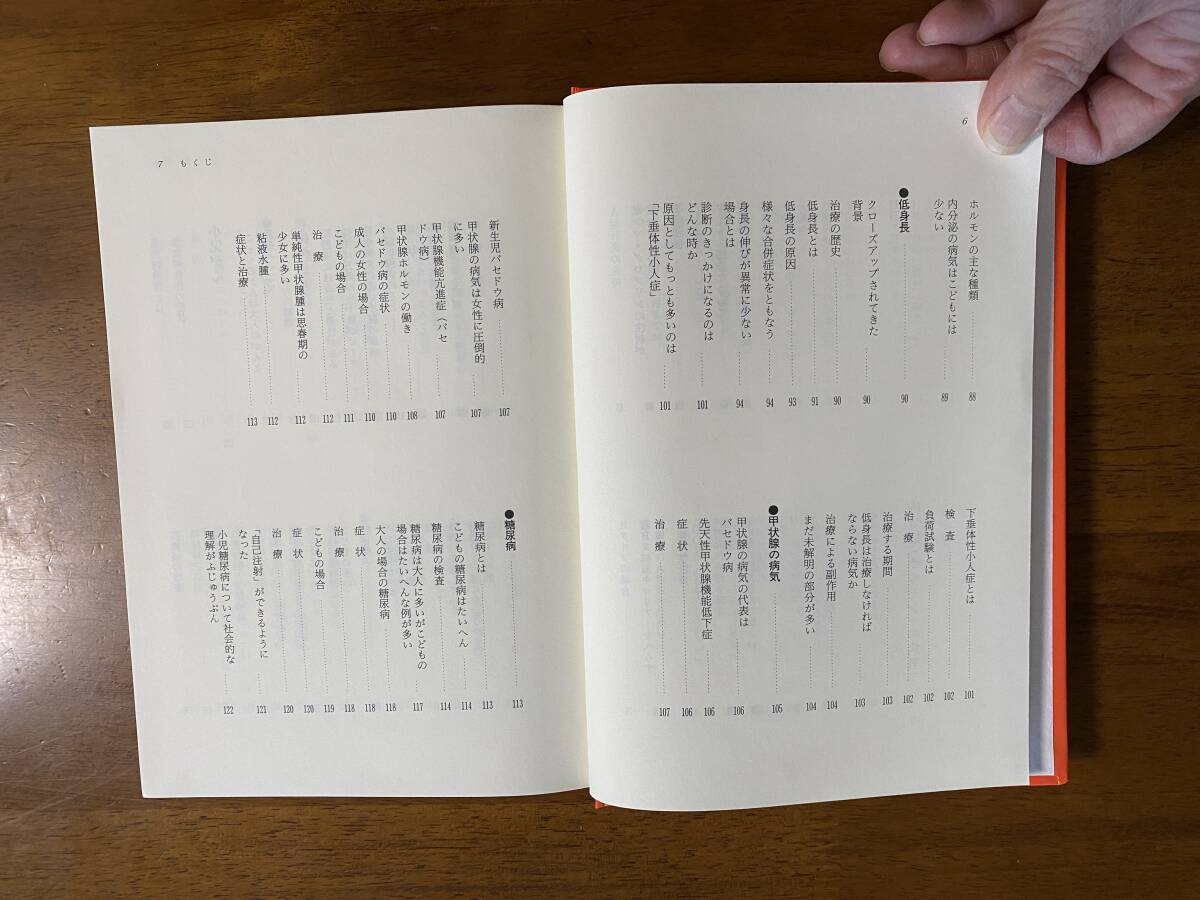 6
ホルモンの主な種類……………88
内分泌の病気はこどもには
少ない……………89
●低身長……………90
クローズアップされてきた
背景……………90
治療の歴史……………90
低身長とは……………91
低身長の原因……………93
様々な合併症状をともなう……………94
身長の伸びが異常に少ない
場合とは……………94
診断のきっかけになるのは
どんな時か……………101
原因としてもっとも多いのは
「下垂体性小人症」……………101
下垂体性小人症とは……………101
検 査……………102
負荷試験とは……………102
治 療……………102
治療する期間……………103
低身長は治療しなければ
ならない病気か……………103
治療による副作用……………104
まだ未解明の部分が多い……………104
●甲状腺の病気……………105
甲状腺の病気の代表は
バセドウ病……………106
先天性甲状腺機能低下症……………106
症 状……………106
治 療……………107
7 もくじ
新生児バセドウ病……………107
甲状腺の病気は女性に圧倒的
に多い……………107
甲状腺機能亢進症（バセ
ドウ病）……………107
甲状腺ホルモンの働き……………108
バセドウ病の症状……………110
成人の女性の場合……………110
こどもの場合……………111
治 療……………112
単純性甲状腺腫は思春期の
少女に多い……………112
粘液水腫……………112
症状と治療……………113
●糖尿病……………113
糖尿病とは……………113
こどもの糖尿病はたいへん……………114
糖尿病の検査……………114
糖尿病は大人に多いがこどもの
場合はたいへんな例が多い……………117
大人の場合の糖尿病……………118
症 状……………118
治 療……………118
こどもの場合……………119
症 状……………120
治 療……………120
「自己注射」ができるように
なった……………121
小児糖尿病について社会的な
理解がふじゅうぶん……………122